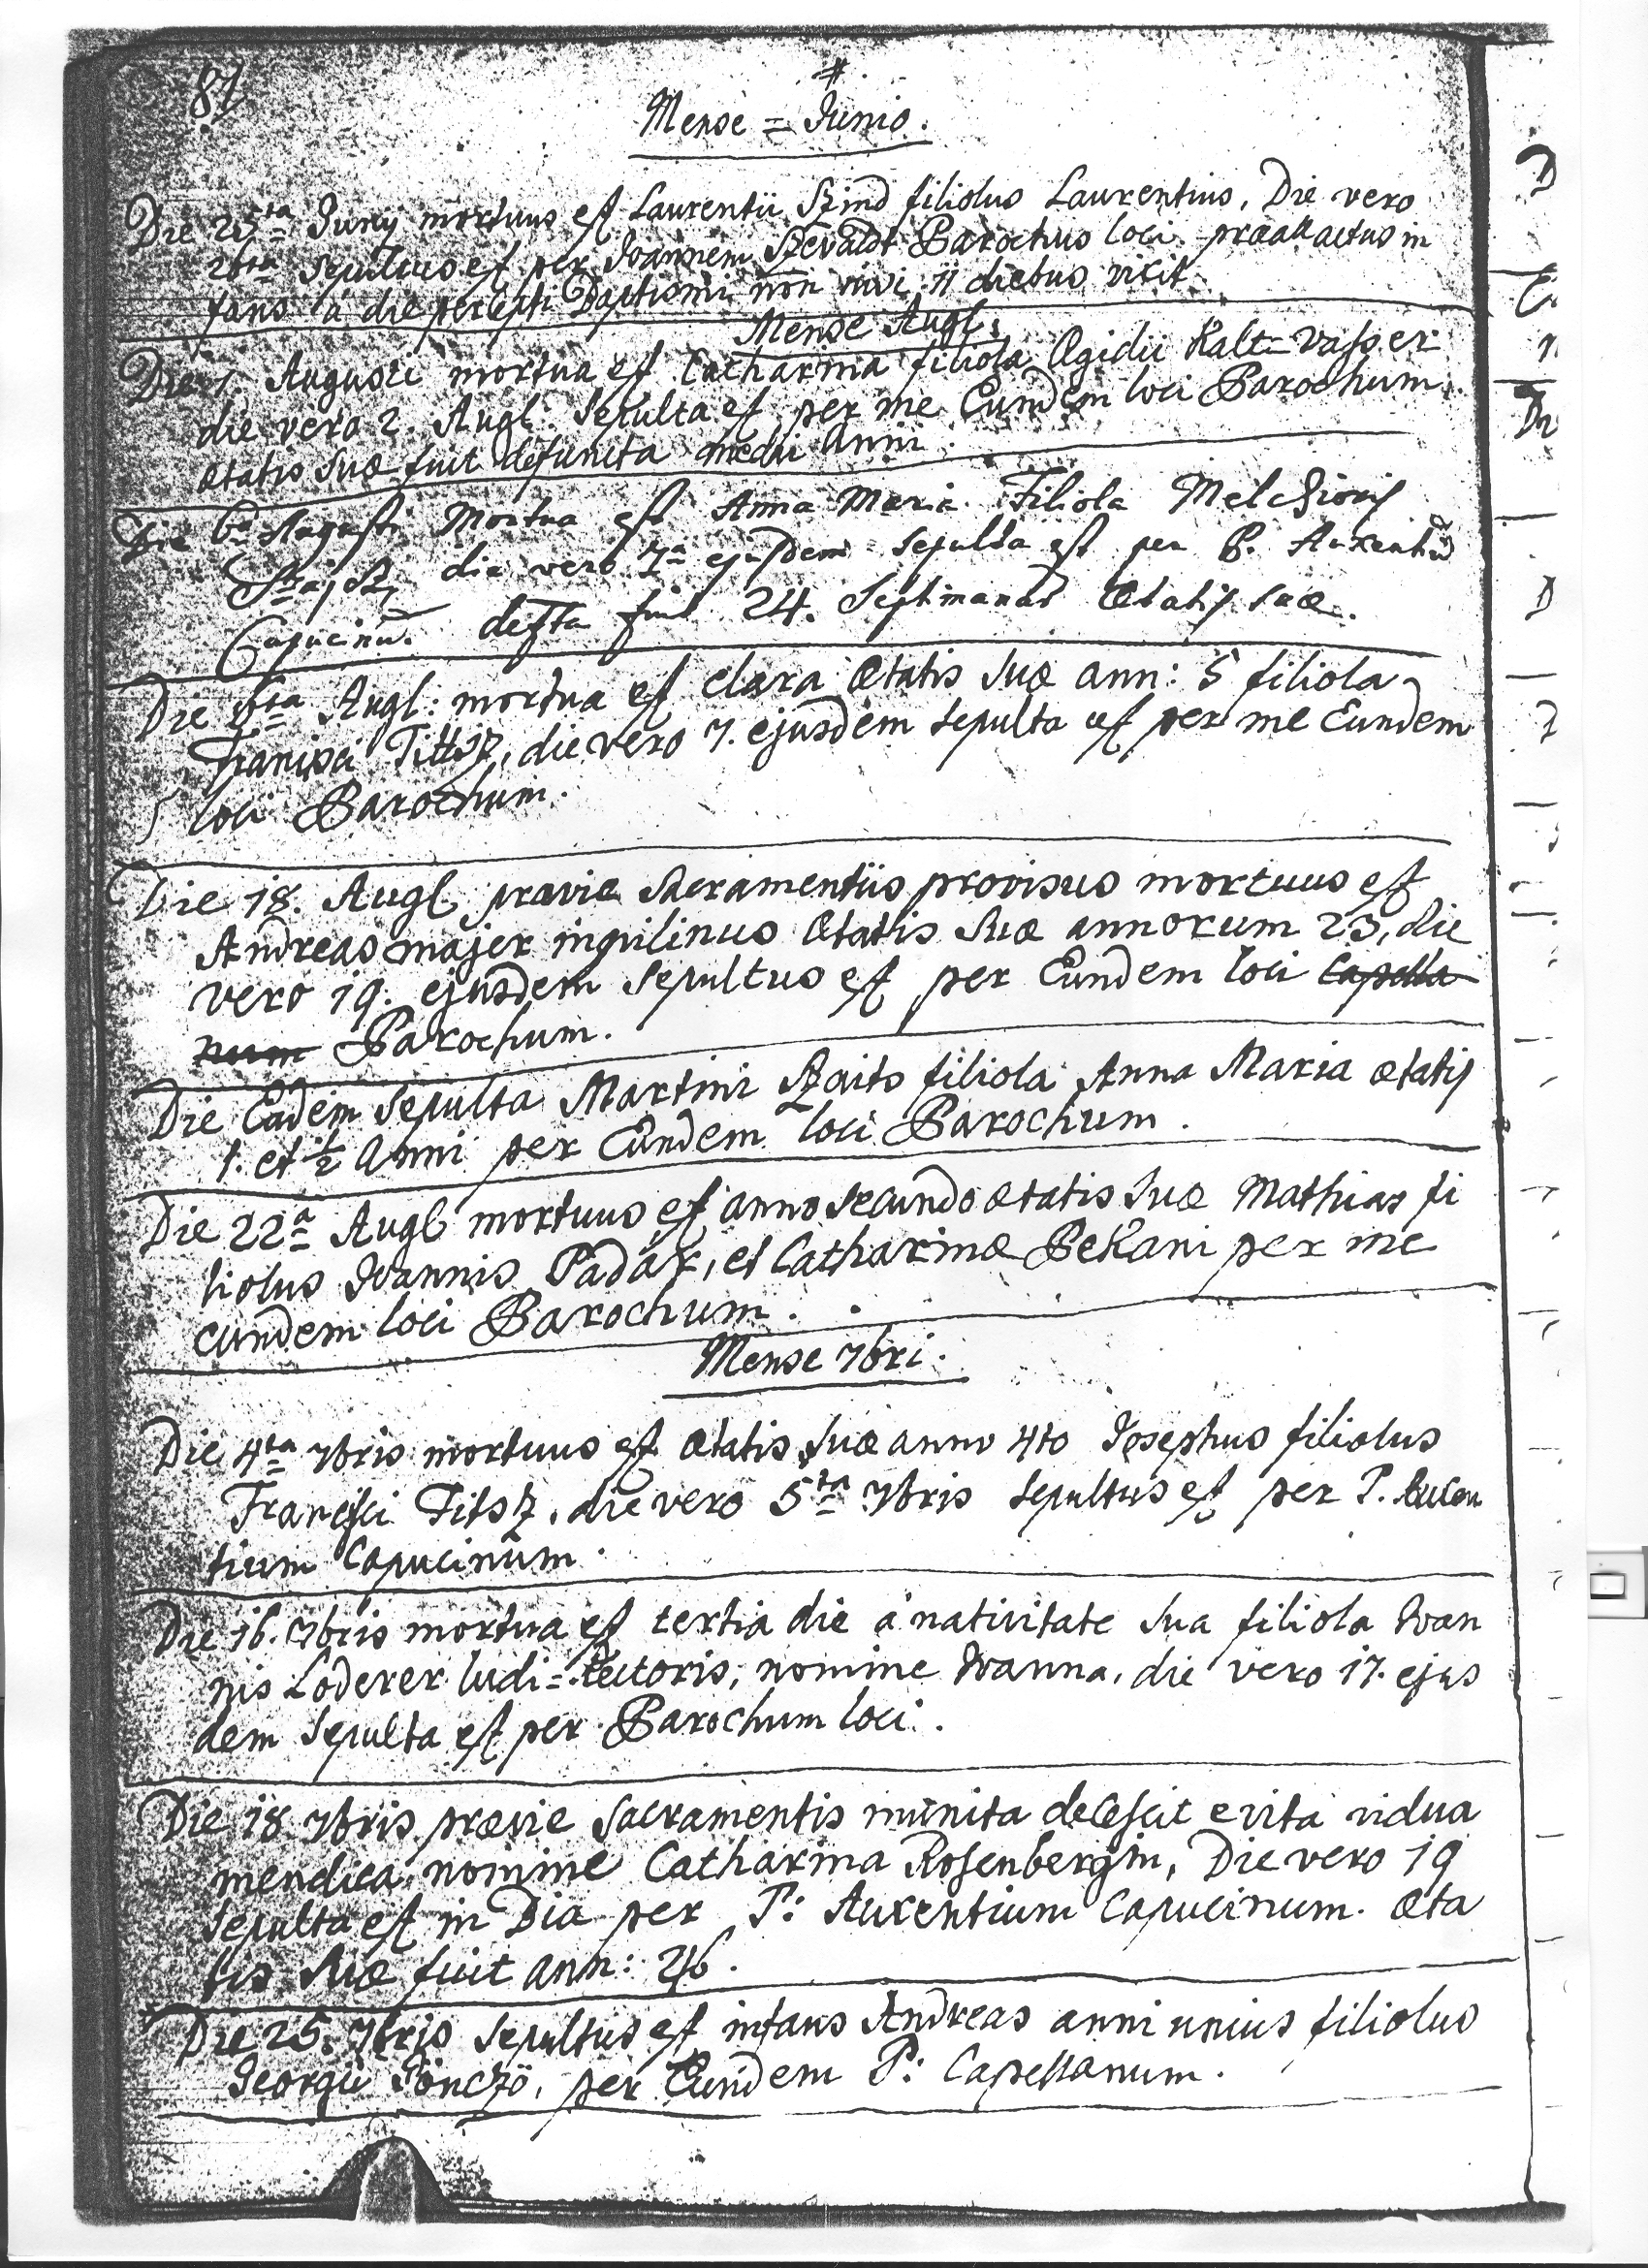 81
#
Mense = Junio.
Die 25ta Junij mortuus est Laurentii Szind filiolus Laurentius, Die vero
26ta sepultus est per Joannem Szevaldt Parochus loci praattactus in
fans á die percepti Baptismi non nisi 11 diebus vixit
Mense Augl.
Die 1. Augusti mortua est Catharina filiola Ægidii Kalt=vasser
die vero 2. Augl. sepulta est per me Eundem loci Parochum.
ætatis suæ fuit defuncta medii Anni.
Die 6a Augusti Mortua est Anna Maria Filiola Melchioris
die vero 7a ejusdem sepulta est per P. Auxentiũ
Capucinũ. defta fuit 24. Septimanas Ætatis suæ.
Die 6ta Augl: mortua est Clara ætatis suæ ann: 5 filiola
Francisci Fittsz, die vero 7. ejusdem sepulta est per me Eundem
loci Parochum.
Die 18. Augl prævie Sacramentiis provisus mortuus est
Andreas Majer inquilinus ætatis suæ annorum 23, die
vero 19. ejusdem sepultus est per Eundem loci Capella
num Parochum.
Die Eadem sepulta Martini Szaits filiola Anna Maria ætatis
1. et ½ Anni per Eundem loci Parochum.
Die 22a Augl mortuus est anno secundo ætatis suæ Mathias fi
liolus Joannis Padár, et Catharinæ Pekani per me
eundem loci Parochum.
Mense 7bri.
Die 4ta 7bris mortuus est ætatis suæ anno 4to Josephus filiolus
Francisci Fitsz, die vero 5ta 7bris sepultus est per P. Auxen
tium Capucinum.
Die 16. 7bris mortua est tertia die á nativitate sua filiola Joan
nis Loderer ludi=Rectoris, nomine Joanna, die vero 17. ejus
dem sepulta est per Parochum loci.
Die 18 7bris prævie Sacramentis munita decessit e vita vidua
mendica, nomine Catharina Rosenbergin, Die vero 19
sepulta est in Dia per P: Auxentium Capucinum. æta
tis suæ fuit ann: 46.
Die 25. 7bris sepultus est infans Andreas anni unius filiolus
Georgii Gönczö, per Eundem P: Capellanum.